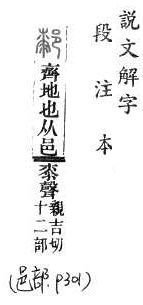 說文解字
段注本
齊地也从邑
桼聲
親吉切
十二部
(邑部.p301)